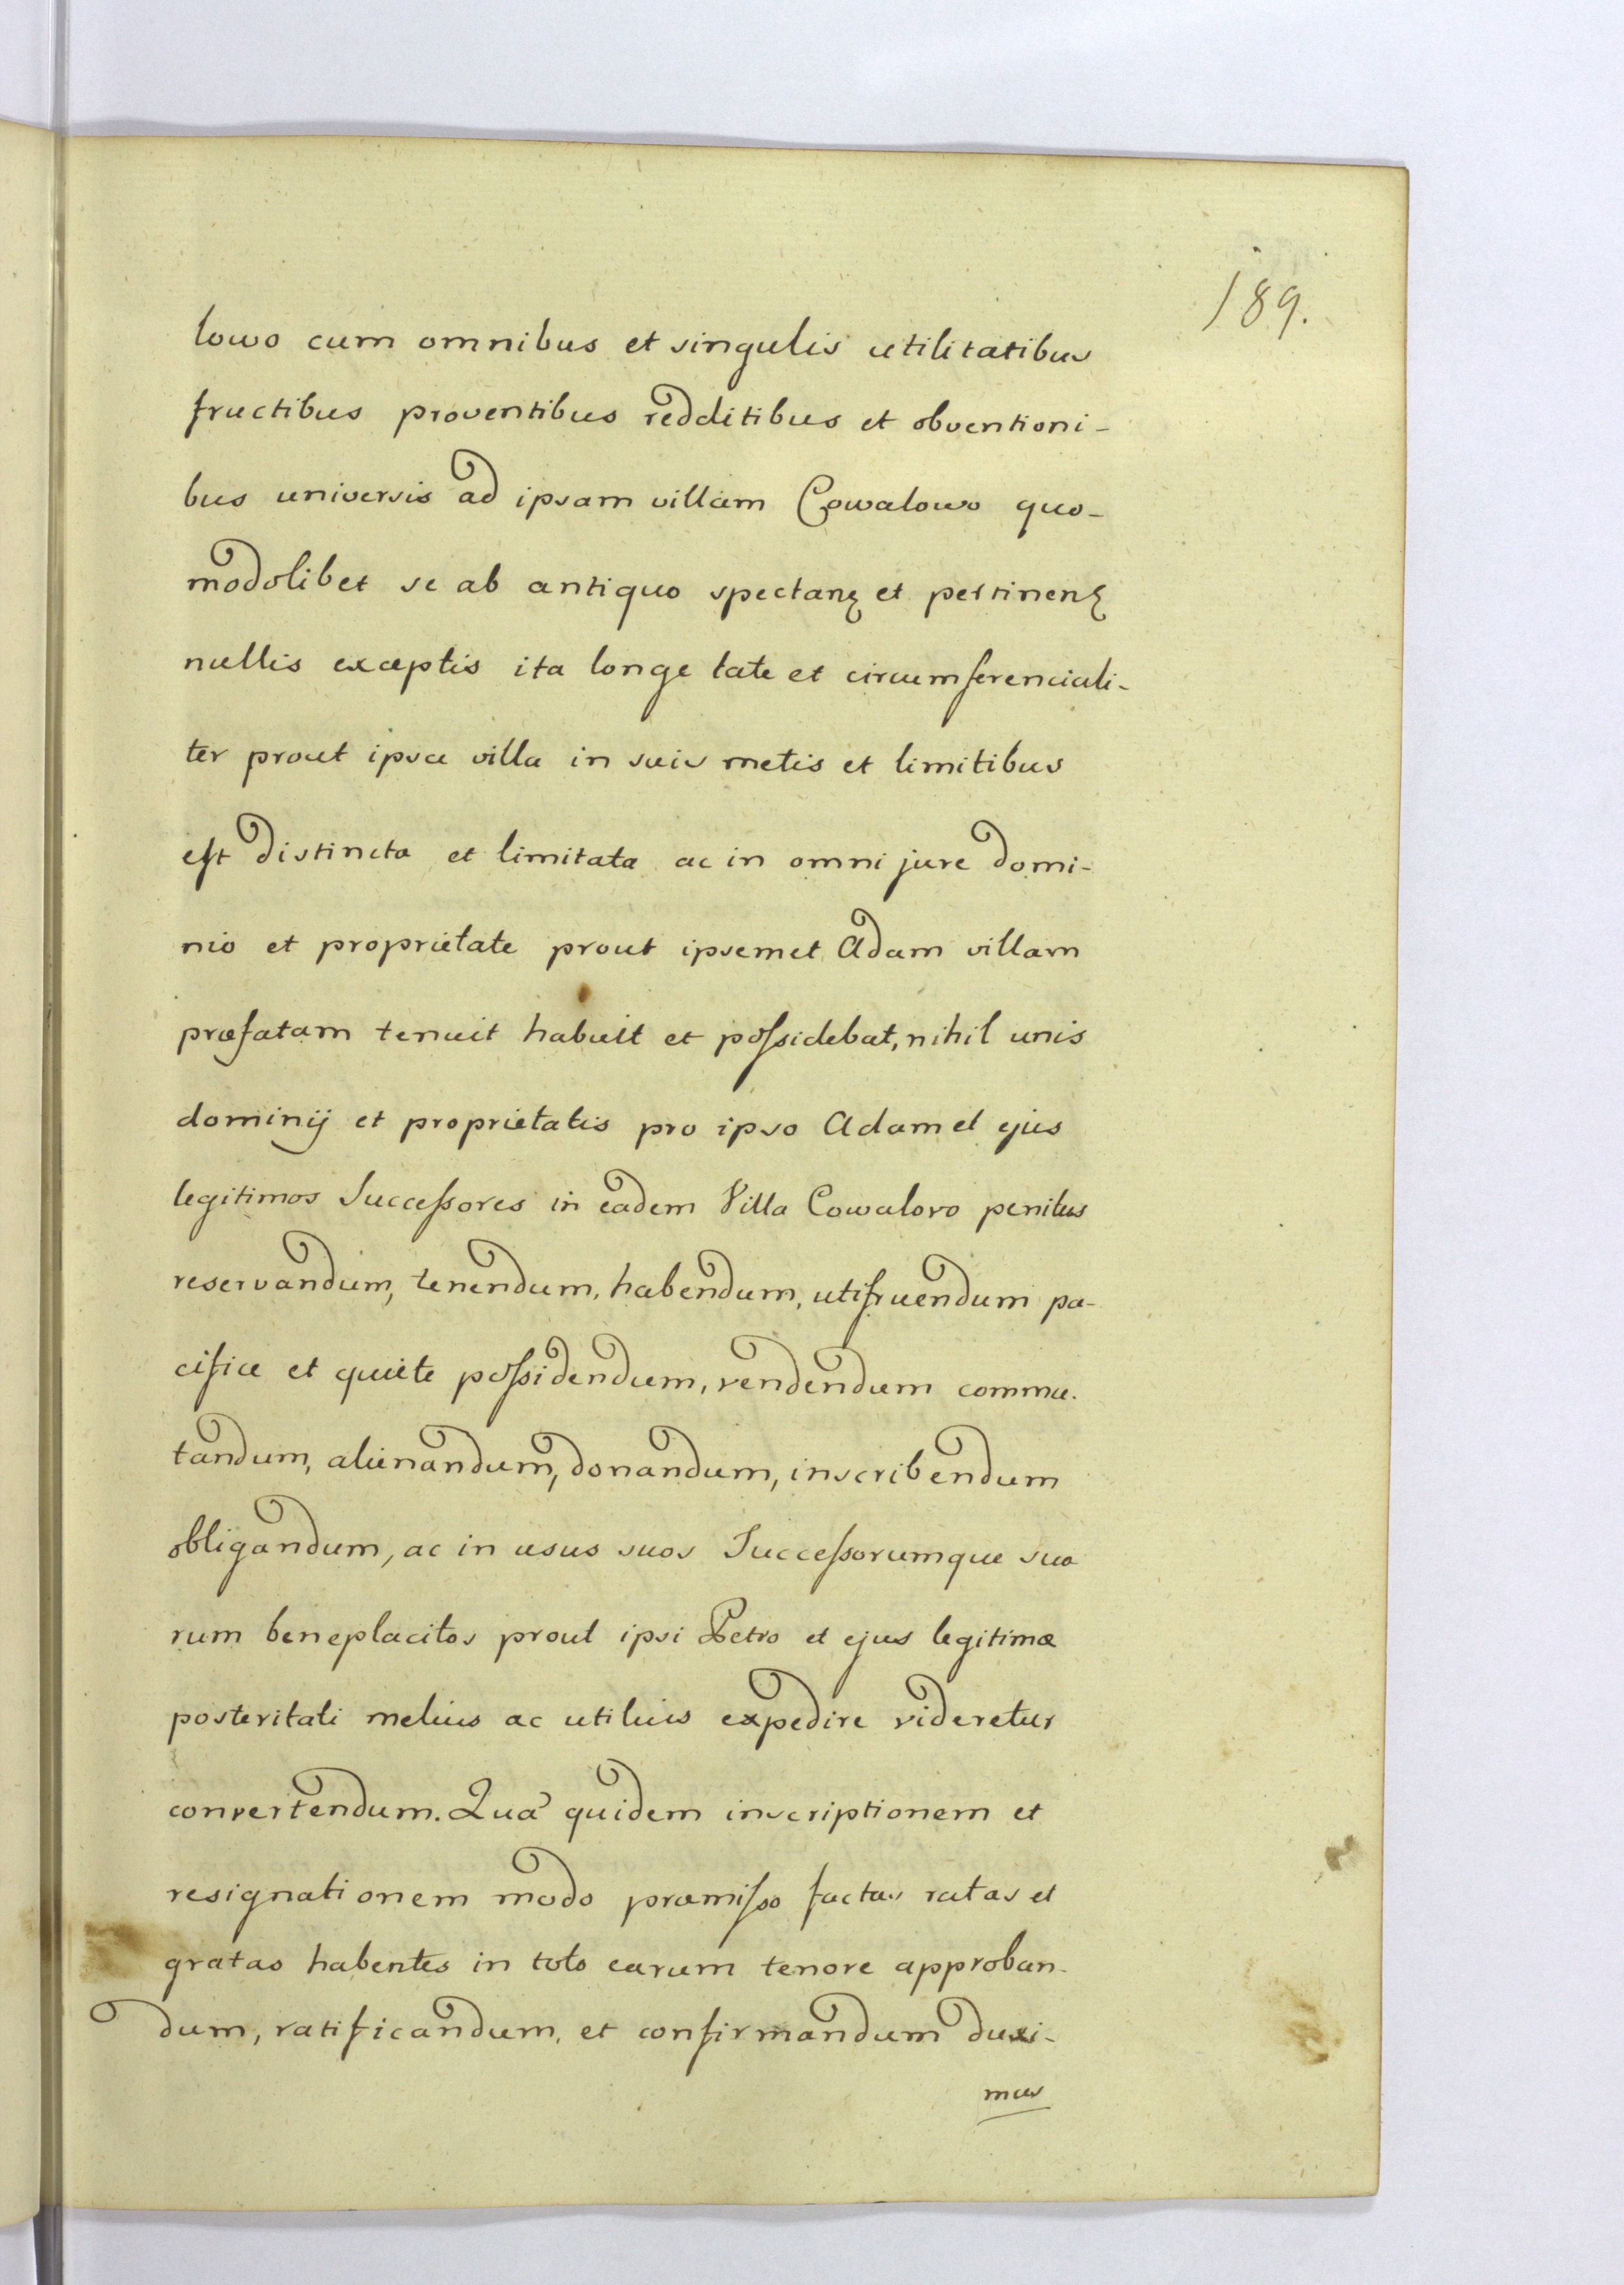 189.
lowo cum omnibus et singulis utilitatibus
fructibus proventibus redditibus et obventioni-
bus universis ad ipsam villam Cowalowo quo-
modolibet se ab antiquo spectanꝫ et pertinenꝫ
nullis exceptis ita longe late et circumferenciali-
ter prout ipsa villa in suis metis et limitibus
est distincta et limitata ac in omni jure domi-
nio et proprietate prout ipsemet Adam villam
præfatam tenuit habuit et possidebat, nihil unis
dominij et proprietatis pro ipso Adam et ejus
legitimos Successores in eadem Villa Cowalovo penitus
reservandum, tenendum, habendum, utifruendum pa-
cifice et quiete possidendum, vendendum commu.
tandum, alienandum, donandum, inscribendum
obligandum, ac in usus suos Successorumque suo
rum beneplacitos prout ipsi Petro et ejus legitimæ
posteritati melius ac utilius expedire videretur
convertendum. Quã quidem inscriptionem et
resignationem modo præmisso factas ratas et
gratas habentes in toto earum tenore approban-
dum, ratificandum, et confirmandum duxi-
mus